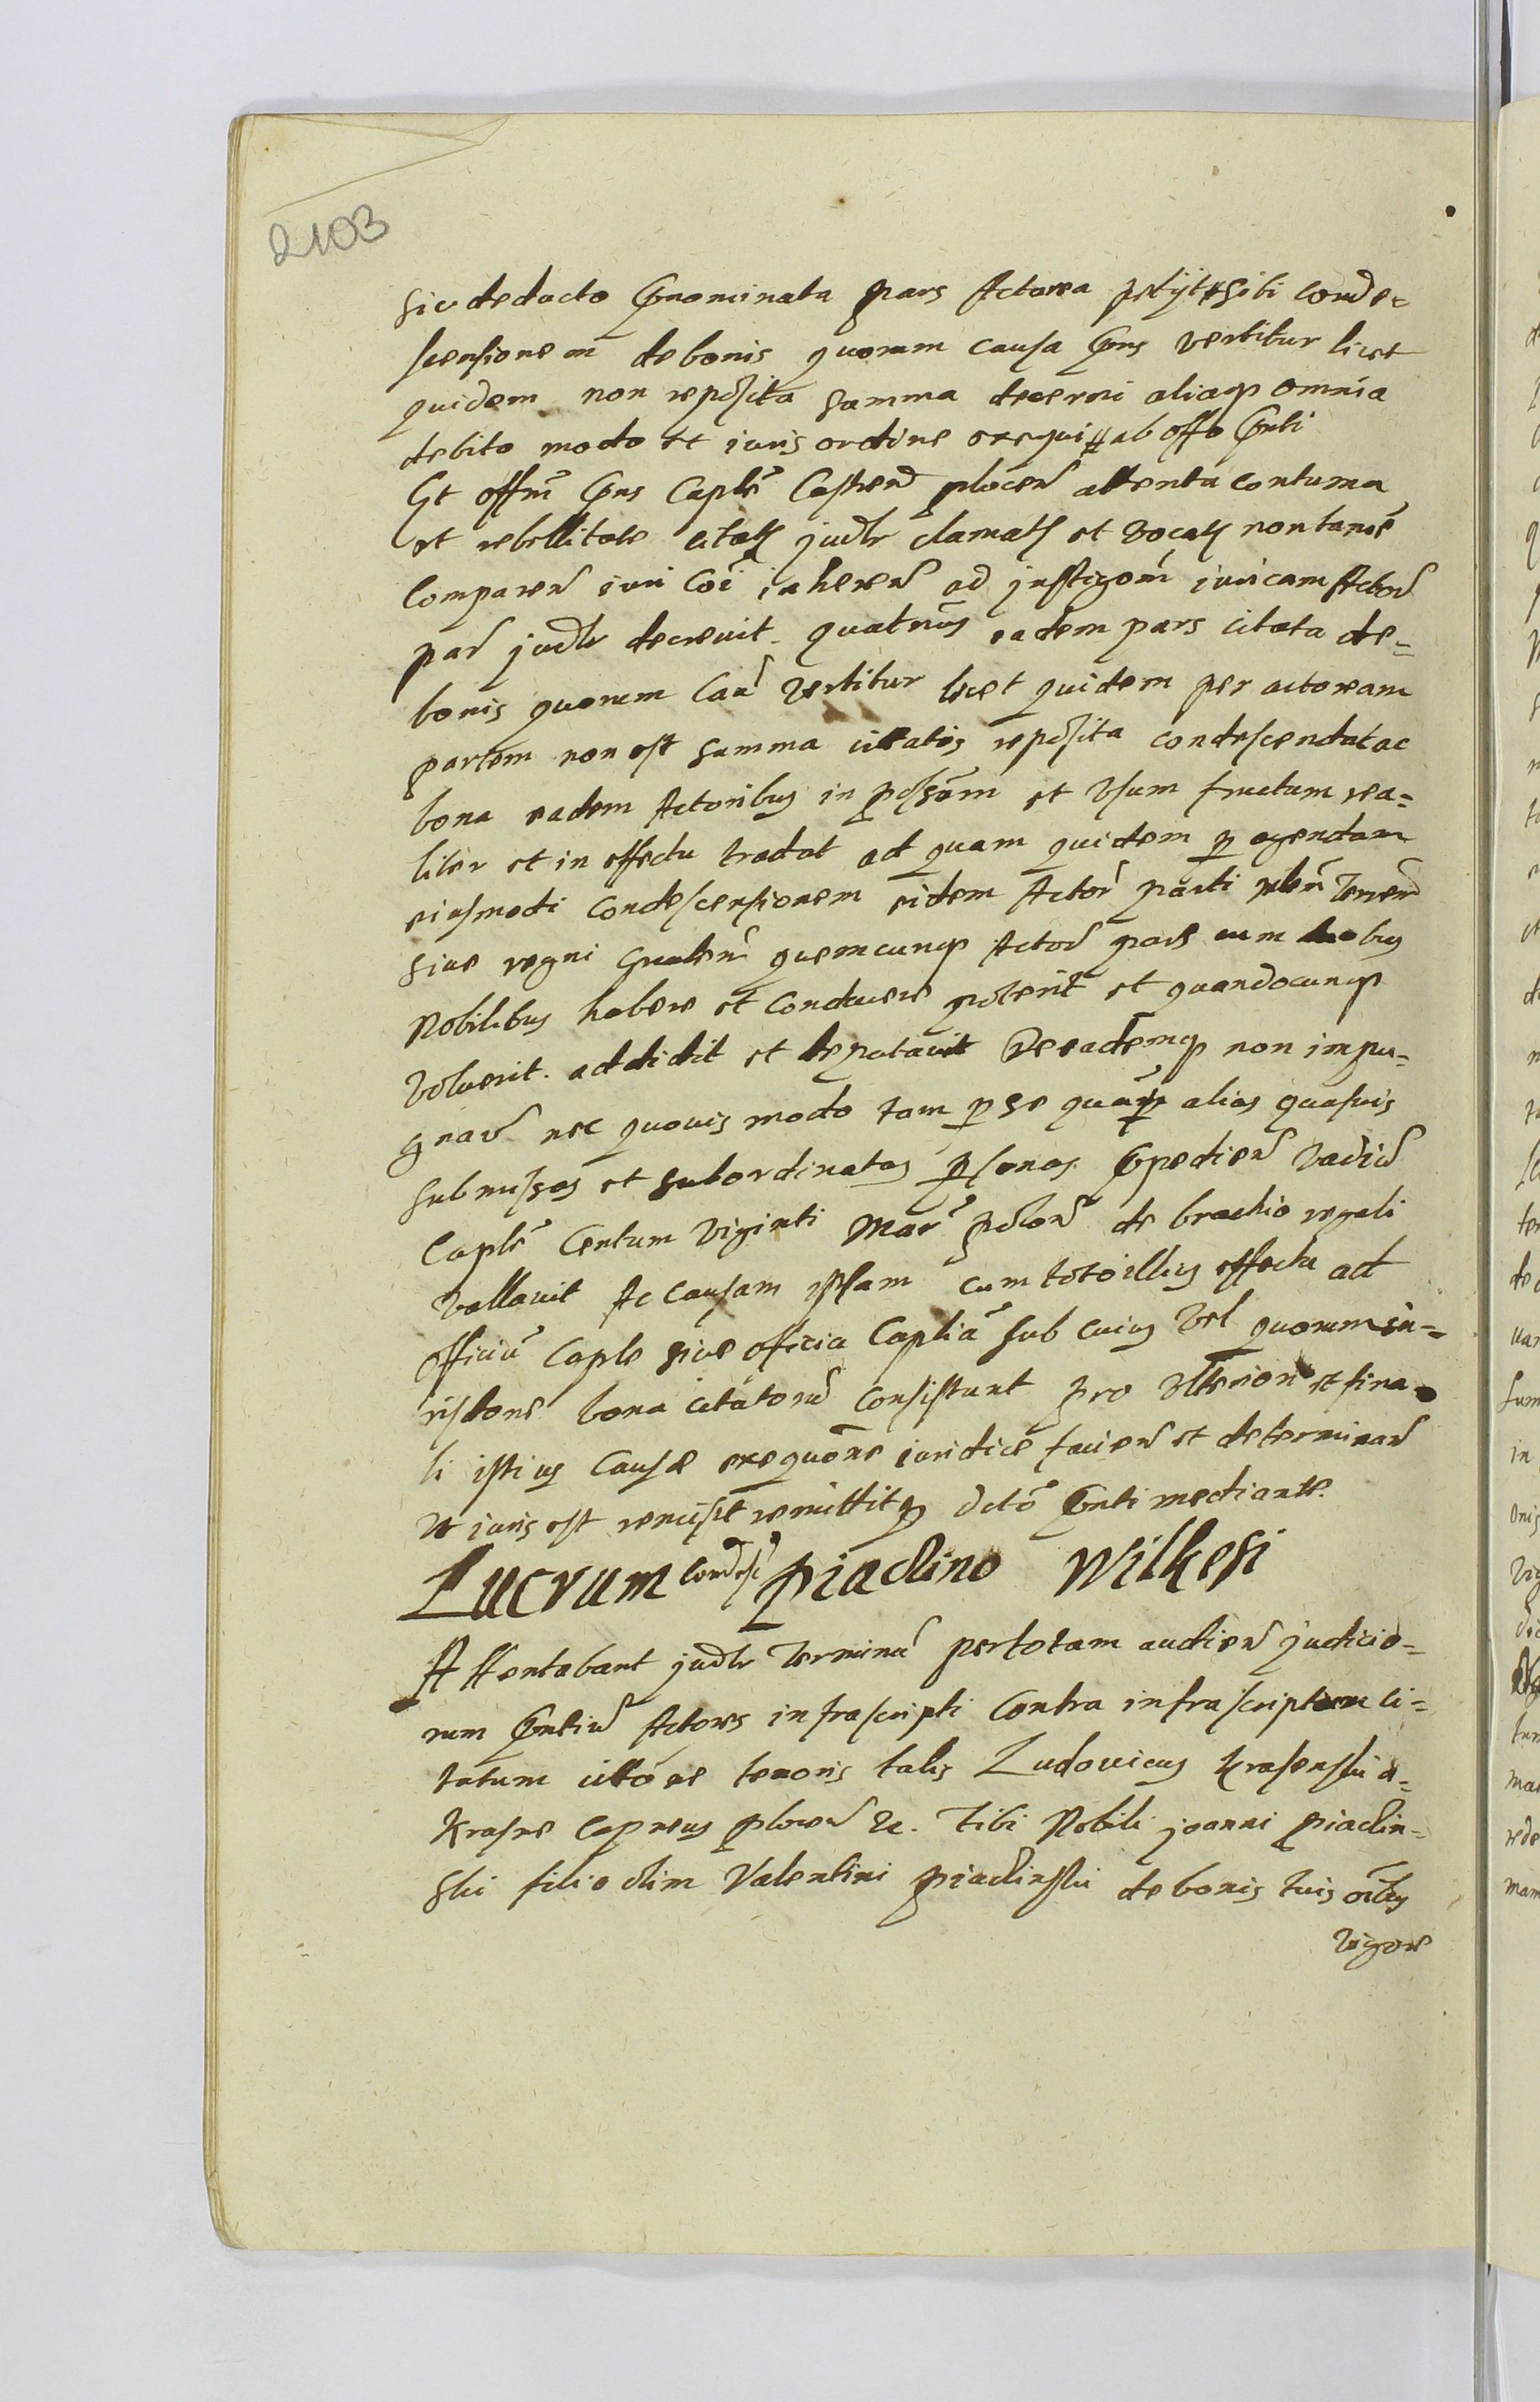 2103
sic deducto pnominata pars Actorea petijt sibi conde-
scensionem de bonis quorum causa pns vertitur licet
quidem non reposita summa decerni aliaqp omnia
debito modo et iuris ordine exequi ab offo pnti
Et offm pns Caple Castren plocen attenta contuma
et rebellitate citati judlr clamati et vocati non tame
comparen iuri coi inheren ad instigom iuricam Actor
par judlr decrevit quatnus eadem pars citata de-
bonis quorum Cau vertitur licet quidem per actoream
partem non est summa citatis reposita condescendat ac
bona eadem Actoribus in possom et vsum fructum rea-
liter et in effectu tradat ad quam quidem p agendam
eiusmodi condescensionem eidem Actor parti Terren
sive regni gnalem quemcunqp Actor pars cum duobus
Nobilibus habere et conducere poterit et quandocunqp
voluerit addidit et deputavit Deeademqp non impu-
gnan nec quovis modo tam p se quam p alias quasvis
submissas et subordinatas psonas pedien vadio
Caple Centum viginti Mar polon de brachio regali
vallavit Ac causam ipsam cum toto illius effectu ad
officiu Caple sive officia Caplia sub cuius vel quorum iu-
risdone bona citatoru consistunt pro vlteriore et fina
li istius causæ exequone iuridice facien et determinan
vt iuris est remisit remittitqp dcto pnti mediante
Lucrum condesc Piaclino Wilkesi
Attentabant judlr Terminu per totam audien judicio-
rum pntiu Actores infrascripti Contra infrascriptum ci-
tatum citto ne tenoris talis Ludovicus Krasenski a-
Krasne Capneus plocen &c. Tibi Nobili joanni piaclin-
ski filio olim Valentini piaclinski de bonis tuis oibus
vigore